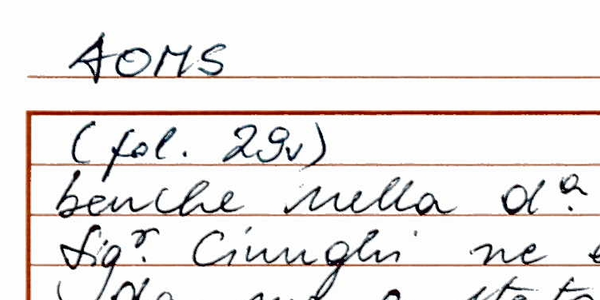 AOMS
(fol. 29v)
benche nella d.ª
Sig.r Cinughi ne